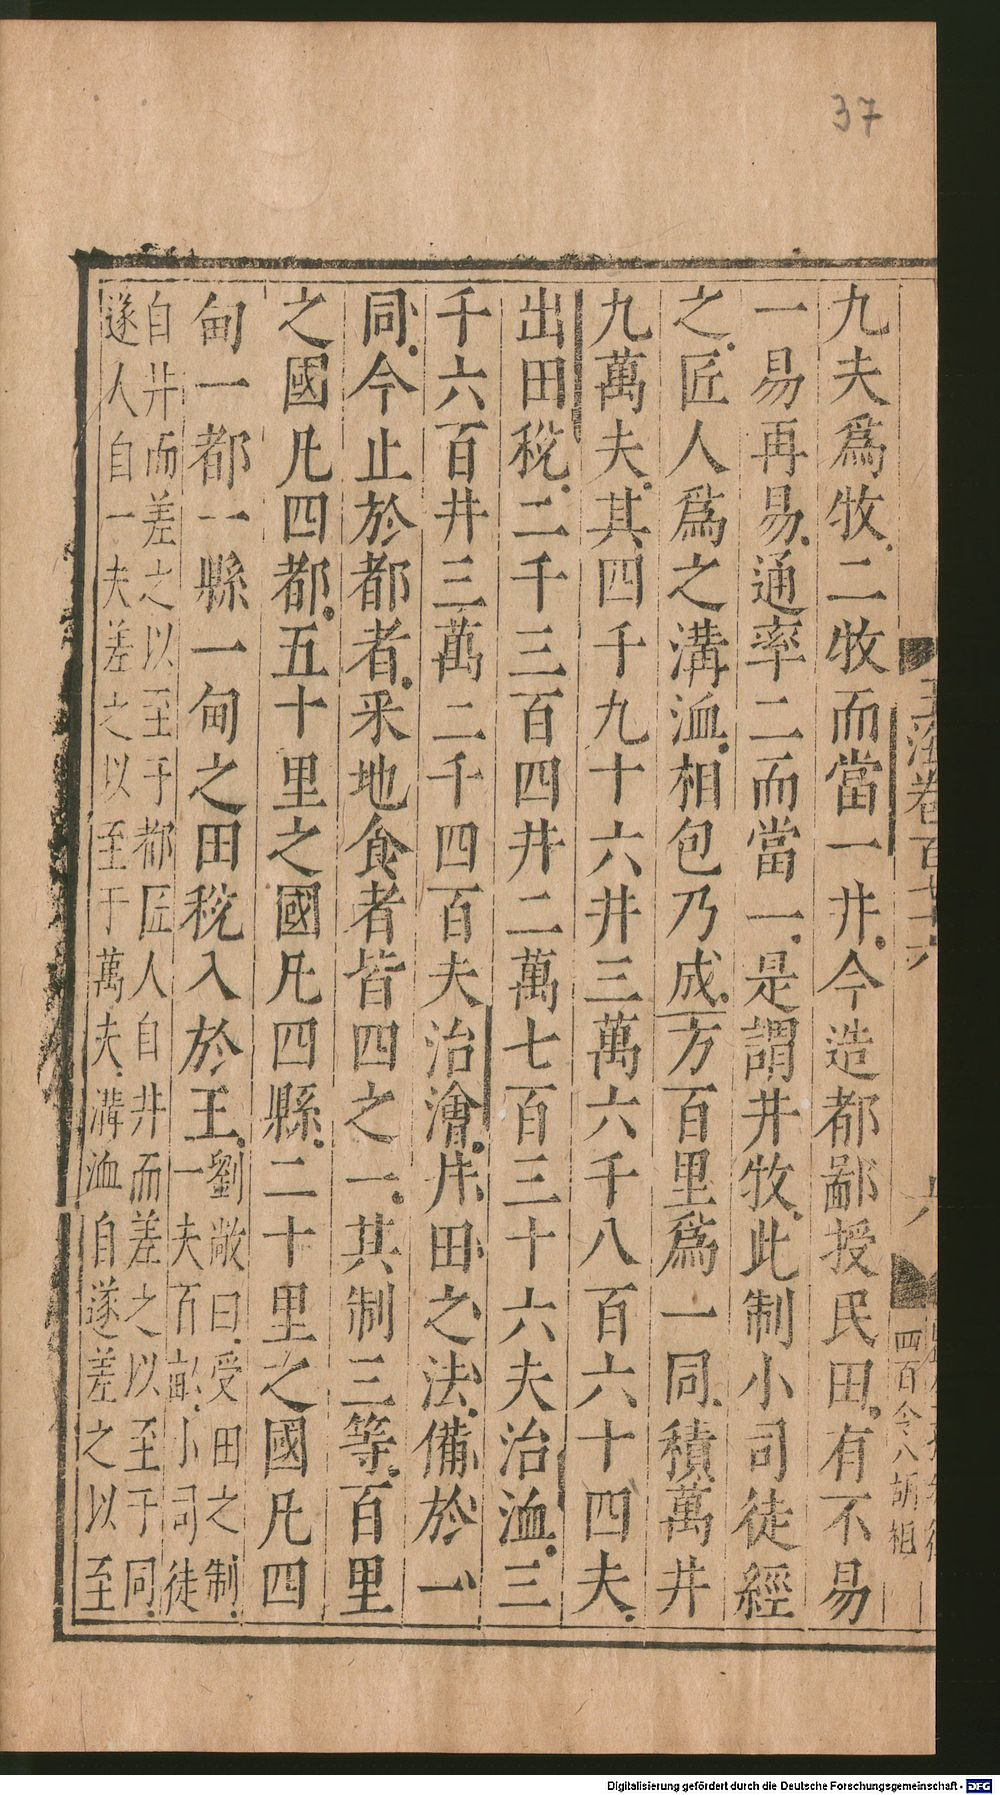 37
玉海卷百七十六
六
四百令八胡桓
九夫爲牧二牧而當一井今造都鄙授民田有不易
一易再易通率二而當一是謂井牧此制小司徒經
之匠人爲之溝洫相包乃成方百里爲一同積萬井
九萬夫其四千九十六井三萬六千八百六十四夫
出田稅二千三百四井二萬七百三十六夫治洫三
千六百井三萬二千四百夫治澮井田之法備於一
同今止於都者采地食者皆四之一其制三等百里
之國凡四都五十里之國凡四縣二十里之國凡四
甸一都一縣一甸之田稅入於王劉敞曰受田之制
一夫百畝小司徒
自井而差之以至于都匠人自井而差之以至于同
遂人自一夫差之以至于萬夫溝洫自遂差之以至
Digitalisierung gefördert durch die Deutsche Forschungsgemeinschaft - DFG